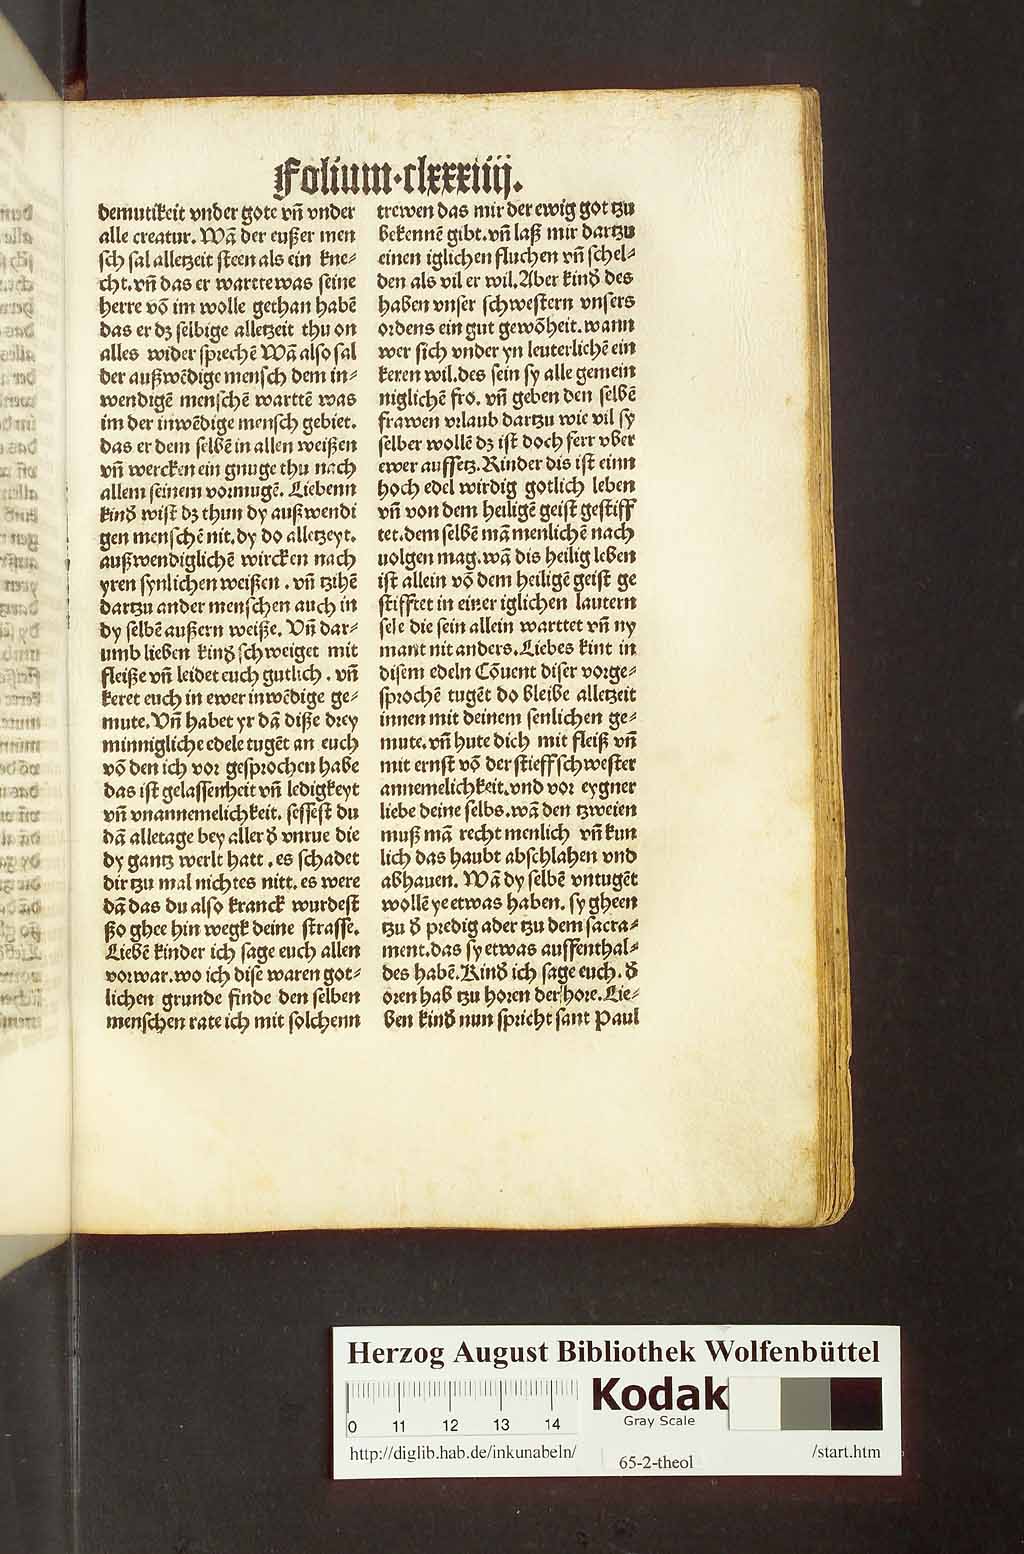 Folium·clxxxiiij.
demutikeit vnder gote vn̄ vnder
alle creatur. Wā der eußer men
sch sal alletzeit steen als ein kne⸗
cht. vn̄ das er wartte was seine
herre vō im wolle gethan habē
das er dz selbige alletzeit thu on
alles wider sprechē Wā also sal
der außwēdige mensch dem in⸗
wendigē menschē warttē was
im der inwēdige mensch gebiet.
das er dem selbē in allen weißen
vn̄ wercken ein gnuge thu nach
allem seinem vormugē. Liebenn
kind wist dz thun dy außwendi
gen menschē nit. dy do alletzeyt.
außwendiglichē wircken nach
yren synlichen weißen. vn̄ tzihē
dartzu ander menschen auch in
dy selbē außern weiße. Vn̄ dar⸗
umb lieben kind schweiget mit
fleiße vn̄ leidet euch gutlich. vn̄
keret euch in ewer inwēdige ge⸗
mute. Vn̄ habet yr dā diße drey
minnigliche edele tugēt an euch
vō den ich vor gesprochen habe
das ist gelassenheit vn̄ ledigkeyt
vn̄ vnannemelichkeit. sessest du
dā alletage bey aller đ vnrue die
dy gantz werlt hatt. es schadet
dir tzu mal nichtes nitt. es were
dā das du also kranck wurdest
ßo ghee hin wegk deine strasse.
Liebē kinder ich sage euch allen
vorwar. wo ich dise waren got⸗
lichen grunde finde den selben
menschen rate ich mit solchenn
trewen das mir der ewig got tzu
bekennē gibt. vn̄ laß mir dartzu
einen iglichen fluchen vn̄ schel⸗
den als vil er wil. Aber kind des
haben vnser schwestern vnsers
ordens ein gut gewōheit. wann
wer sich vnder yn leuterlichē ein
keren wil. des sein sy alle gemein
niglichē fro. vn̄ geben den selbē
frawen vrlaub dartzu wie vil sy
selber wollē dz ist doch ferr vber
ewer auffsetz. Kinder dis ist einn
hoch edel wirdig gotlich leben
vn̄ von dem heiligē geist gestiff
tet. dem selbē mā menlichē nach
uolgen mag. wā dis heilig leben
ist allein vō dem heiligē geist ge
stifftet in einer iglichen lautern
sele die sein allein warttet vn̄ ny
mant nit anders. Liebes kint in
disem edeln Cōuent diser vorge⸗
sprochē tugēt do bleibe alletzeit
innen mit deinem senlichen ge⸗
mute. vn̄ hute dich mit fleiß vn̄
mit ernst vō der stieffschwester
annemelichkeit. vnd vor eygner
liebe deine selbs. wā den tzweien
muß mā recht menlich vn̄ kun
lich das haubt abschlahen vnd
abhauen. Wā dy selbē vntugēt
wollē ye etwas haben. sy gheen
tzu đ predig ader tzu dem sacra⸗
ment. das sy etwas auffenthal⸗
des habē. Kind ich sage euch. đ
oren hab tzu horen der hore. Lie⸗
ben kind nun spricht sant Paul
Herzog August Bibliothek Wolfenbüttel
0 11 12 13 14
Kodak
Gray Scale
http://diglib.hab.de/inkunabeln/ 65-2-theol /start.htm